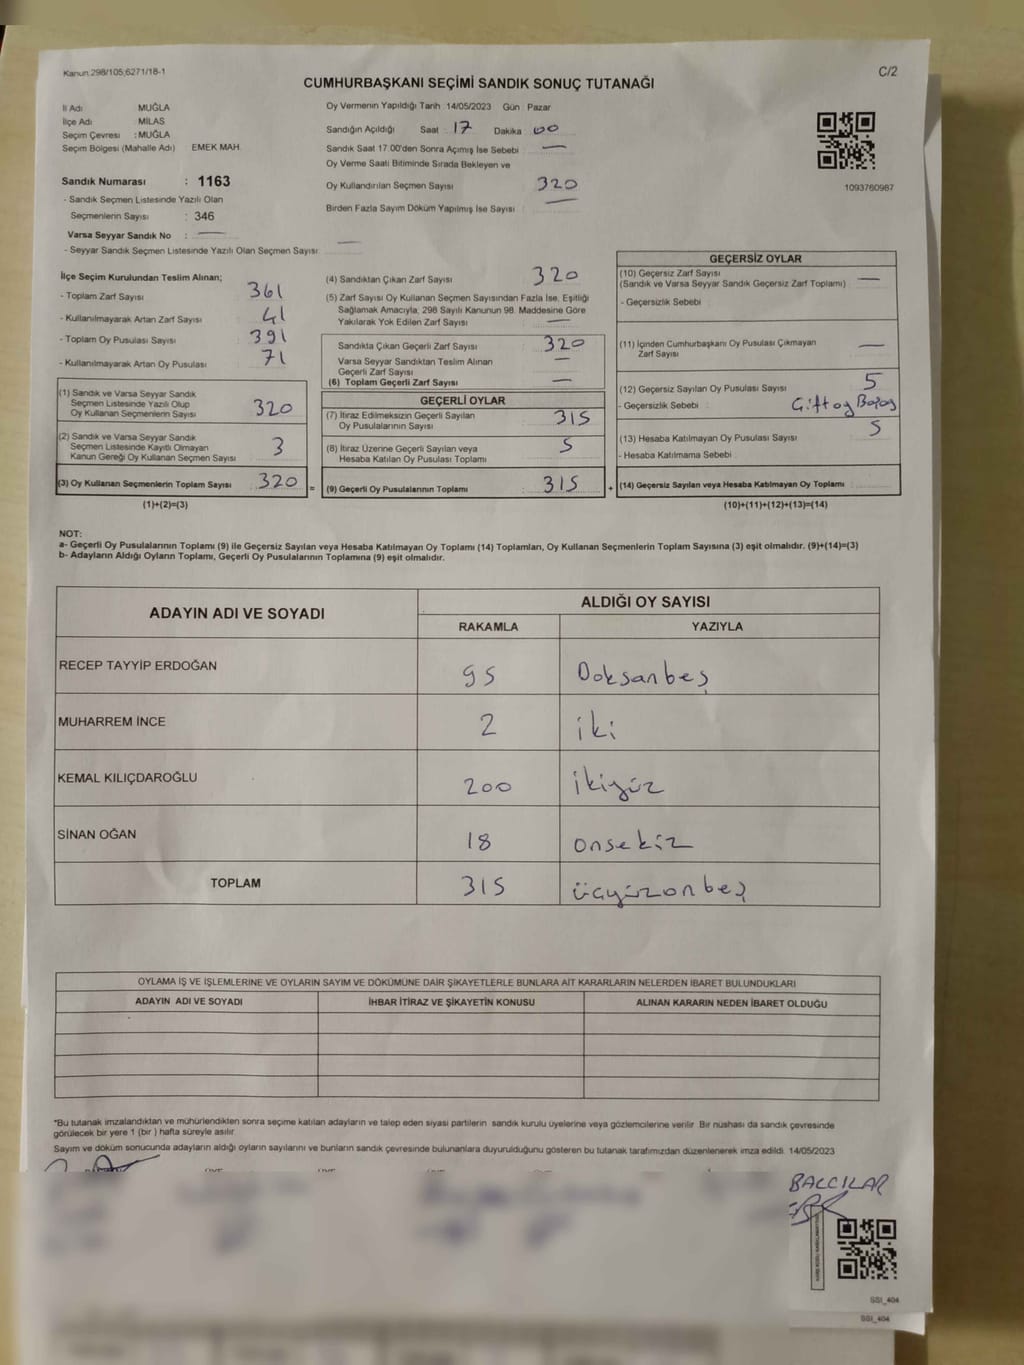 Kanun 298/105;6271/18-1
C/2
CUMHURBAŞKANI SEÇİMİ SANDIK SONUÇ TUTANAĞI
İl Adı MUĞLA
İlçe Adı MİLAS
Seçim Çevresi : MUĞLA
Seçim Bölgesi (Mahalle Adı) EMEK MAH.
Sandık Numarası : 1163
- Sandık Seçmen Listesinde Yazılı Olan
Seçmenlerin Sayısı : 346
Varsa Seyyar Sandık No : —
- Seyyar Sandık Seçmen Listesinde Yazılı Olan Seçmen Sayısı —
Oy Vermenin Yapıldığı Tarih : 14/05/2023 Gün : Pazar
Sandığın Açıldığı Saat : 17 Dakika : 00
Sandık Saat 17:00'den Sonra Açmış İse Sebebi —
Oy Verme Saati Bitiminde Sırada Bekleyen ve
Oy Kullandırılan Seçmen Sayısı 320
Birden Fazla Sayım Döküm Yapılmış İse Sayısı : —
1093760987
İlçe Seçim Kurulundan Teslim Alınan;
- Toplam Zarf Sayısı 361
- Kullanılmayarak Artan Zarf Sayısı 41
- Toplam Oy Pusulası Sayısı 391
- Kullanılmayarak Artan Oy Pusulası 71
(1) Sandık ve Varsa Seyyar Sandık
Seçmen Listesinde Yazılı Olup
Oy Kullanan Seçmenlerin Sayısı 320
(2) Sandık ve Varsa Seyyar Sandık
Seçmen Listesinde Kayıtlı Olmayan
Kanun Gereği Oy Kullanan Seçmen Sayısı 3
(3) Oy Kullanan Seçmenlerin Toplam Sayısı 320 =
(1)+(2)=(3)
(4) Sandıktan Çıkan Zarf Sayısı 320
(5) Zarf Sayısı Oy Kullanan Seçmen Sayısından Fazla İse, Eşitliği
Sağlamak Amacıyla, 298 Sayılı Kanunun 98. Maddesine Göre
Yakılarak Yok Edilen Zarf Sayısı —
Sandıkta Çıkan Geçerli Zarf Sayısı 320
Varsa Seyyar Sandıktan Teslim Alınan
Geçerli Zarf Sayısı —
(6) Toplam Geçerli Zarf Sayısı —
GEÇERLİ OYLAR
(7) İtiraz Edilmeksizin Geçerli Sayılan
Oy Pusulalarının Sayısı 315
(8) İtiraz Üzerine Geçerli Sayılan veya
Hesaba Katılan Oy Pusulası Toplamı 5
(9) Geçerli Oy Pusulalarının Toplamı 315 +
GEÇERSİZ OYLAR
(10) Geçersiz Zarf Sayısı
(Sandık ve Varsa Seyyar Sandık Geçersiz Zarf Toplamı) —
- Geçersizlik Sebebi :
(11) İçinden Cumhurbaşkanı Oy Pusulası Çıkmayan
Zarf Sayısı —
(12) Geçersiz Sayılan Oy Pusulası Sayısı 5
- Geçersizlik Sebebi : Gift oy
5
(13) Hesaba Katılmayan Oy Pusulası Sayısı
- Hesaba Katılmama Sebebi
(14) Geçersiz Sayılan veya Hesaba Katılmayan Oy Toplamı :
(10)+(11)+(12)+(13)=(14)
NOT:
a- Geçerli Oy Pusulalarının Toplamı (9) ile Geçersiz Sayılan veya Hesaba Katılmayan Oy Toplamı (14) Toplamları, Oy Kullanan Seçmenlerin Toplam Sayısına (3) eşit olmalıdır. (9)+(14)=(3)
b- Adayların Aldığı Oyların Toplamı, Geçerli Oy Pusulalarının Toplamına (9) eşit olmalıdır.
ADAYIN ADI VE SOYADI ALDIĞI OY SAYISI
RAKAMLA YAZIYLA
RECEP TAYYİP ERDOĞAN 95 Doksanbeş
MUHARREM İNCE 2 iki
KEMAL KILIÇDAROĞLU 200 ikiyüz
SİNAN OĞAN 18 onsekiz
TOPLAM 315 üçyüzonbeş
OYLAMA İŞ VE İŞLEMLERİNE VE OYLARIN SAYIM VE DÖKÜMÜNE DAİR ŞİKAYETLERLE BUNLARA AİT KARARLARIN NELERDEN İBARET BULUNDUKLARI
ADAYIN ADI VE SOYADI İHBAR İTİRAZ VE ŞİKAYETİN KONUSU ALINAN KARARIN NEDEN İBARET OLDUĞU
*Bu tutanak imzalandıktan ve mühürlendikten sonra seçime katılan adayların ve talep eden siyasi partilerin sandık kurulu üyelerine veya gözlemcilerine verilir. Bir nüshası da sandık çevresinde
görülecek bir yere 1 (bir ) hafta süreyle asılır.
Sayım ve döküm sonucunda adayların aldığı oyların sayılarını ve bunların sandık çevresinde bulunanlara duyurulduğunu gösteren bu tutanak tarafımızdan düzenlenerek imza edildi. 14/05/2023
BALCILAR
SSI_404
SSI_404